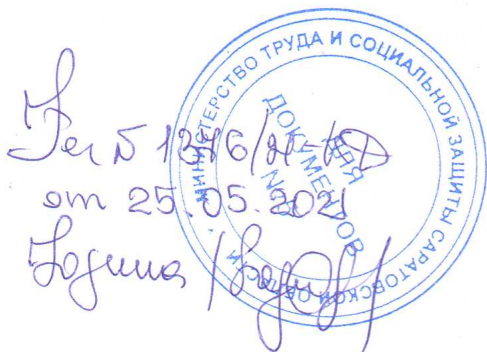 МИНИСТЕРСТВО ТРУДА И СОЦИАЛЬНОЙ ЗАЩИТЫ САРАТОВСКОЙ ОБЛАСТИ
ДЛЯ
ДОКУМЕНТОВ
Рег № 1376/21-КД
от 25.05.2021